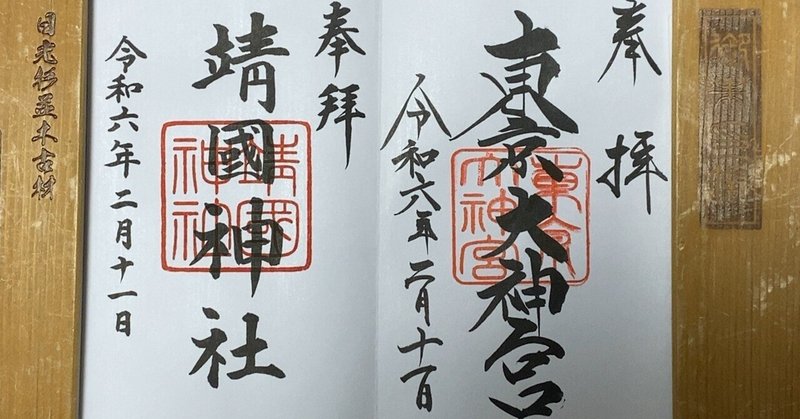 奉拝
東京大神宮
東京大神宮
令和六年二月十一日
奉拝
靖國神社
靖國神社
令和六年二月十一日
日光杉並木古材